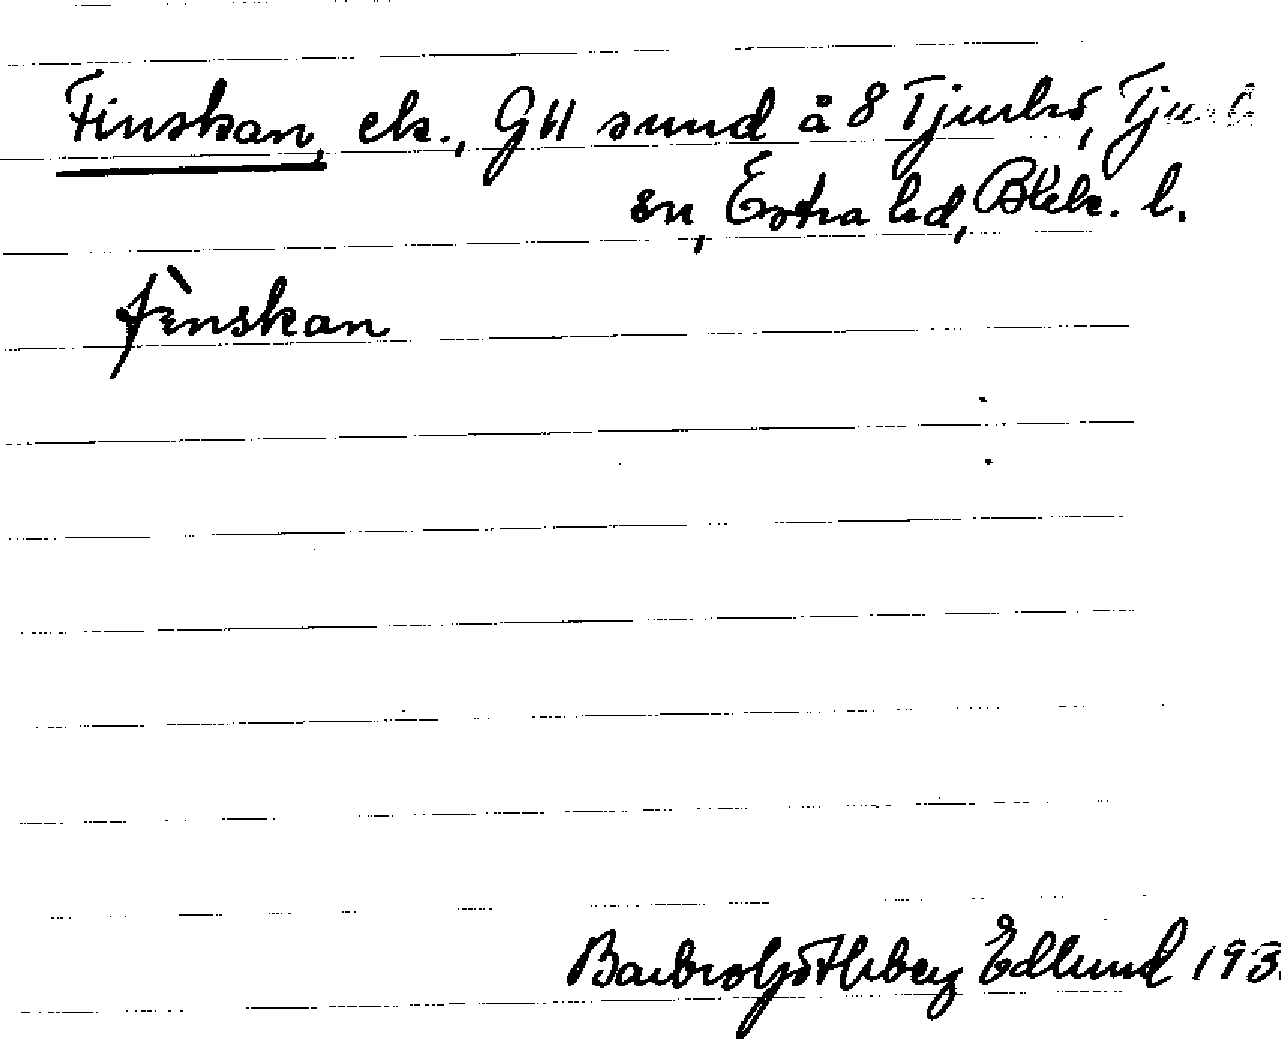 Finskan, ek., GH sund å 8 Tjurkö, Tjurk
sn, Östra hd, Blek. l.
fìnskan
Barbro Götherberg Edlund 193